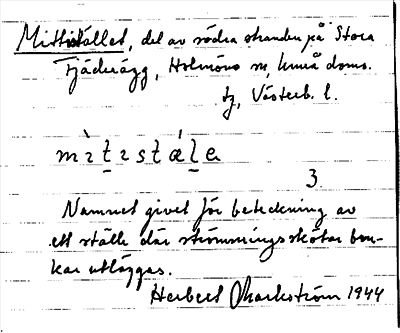 Mittistället, del av södra stranden på Stora
Fjäderägg, Holmöns sn, Umeå doms.
tg, Västerb. l.
mìtistǽle
3.
Namnet givet för beteckning av
ett ställe där strömmingsskötar bru-
kar utläggas.
Herbert Markström 1944